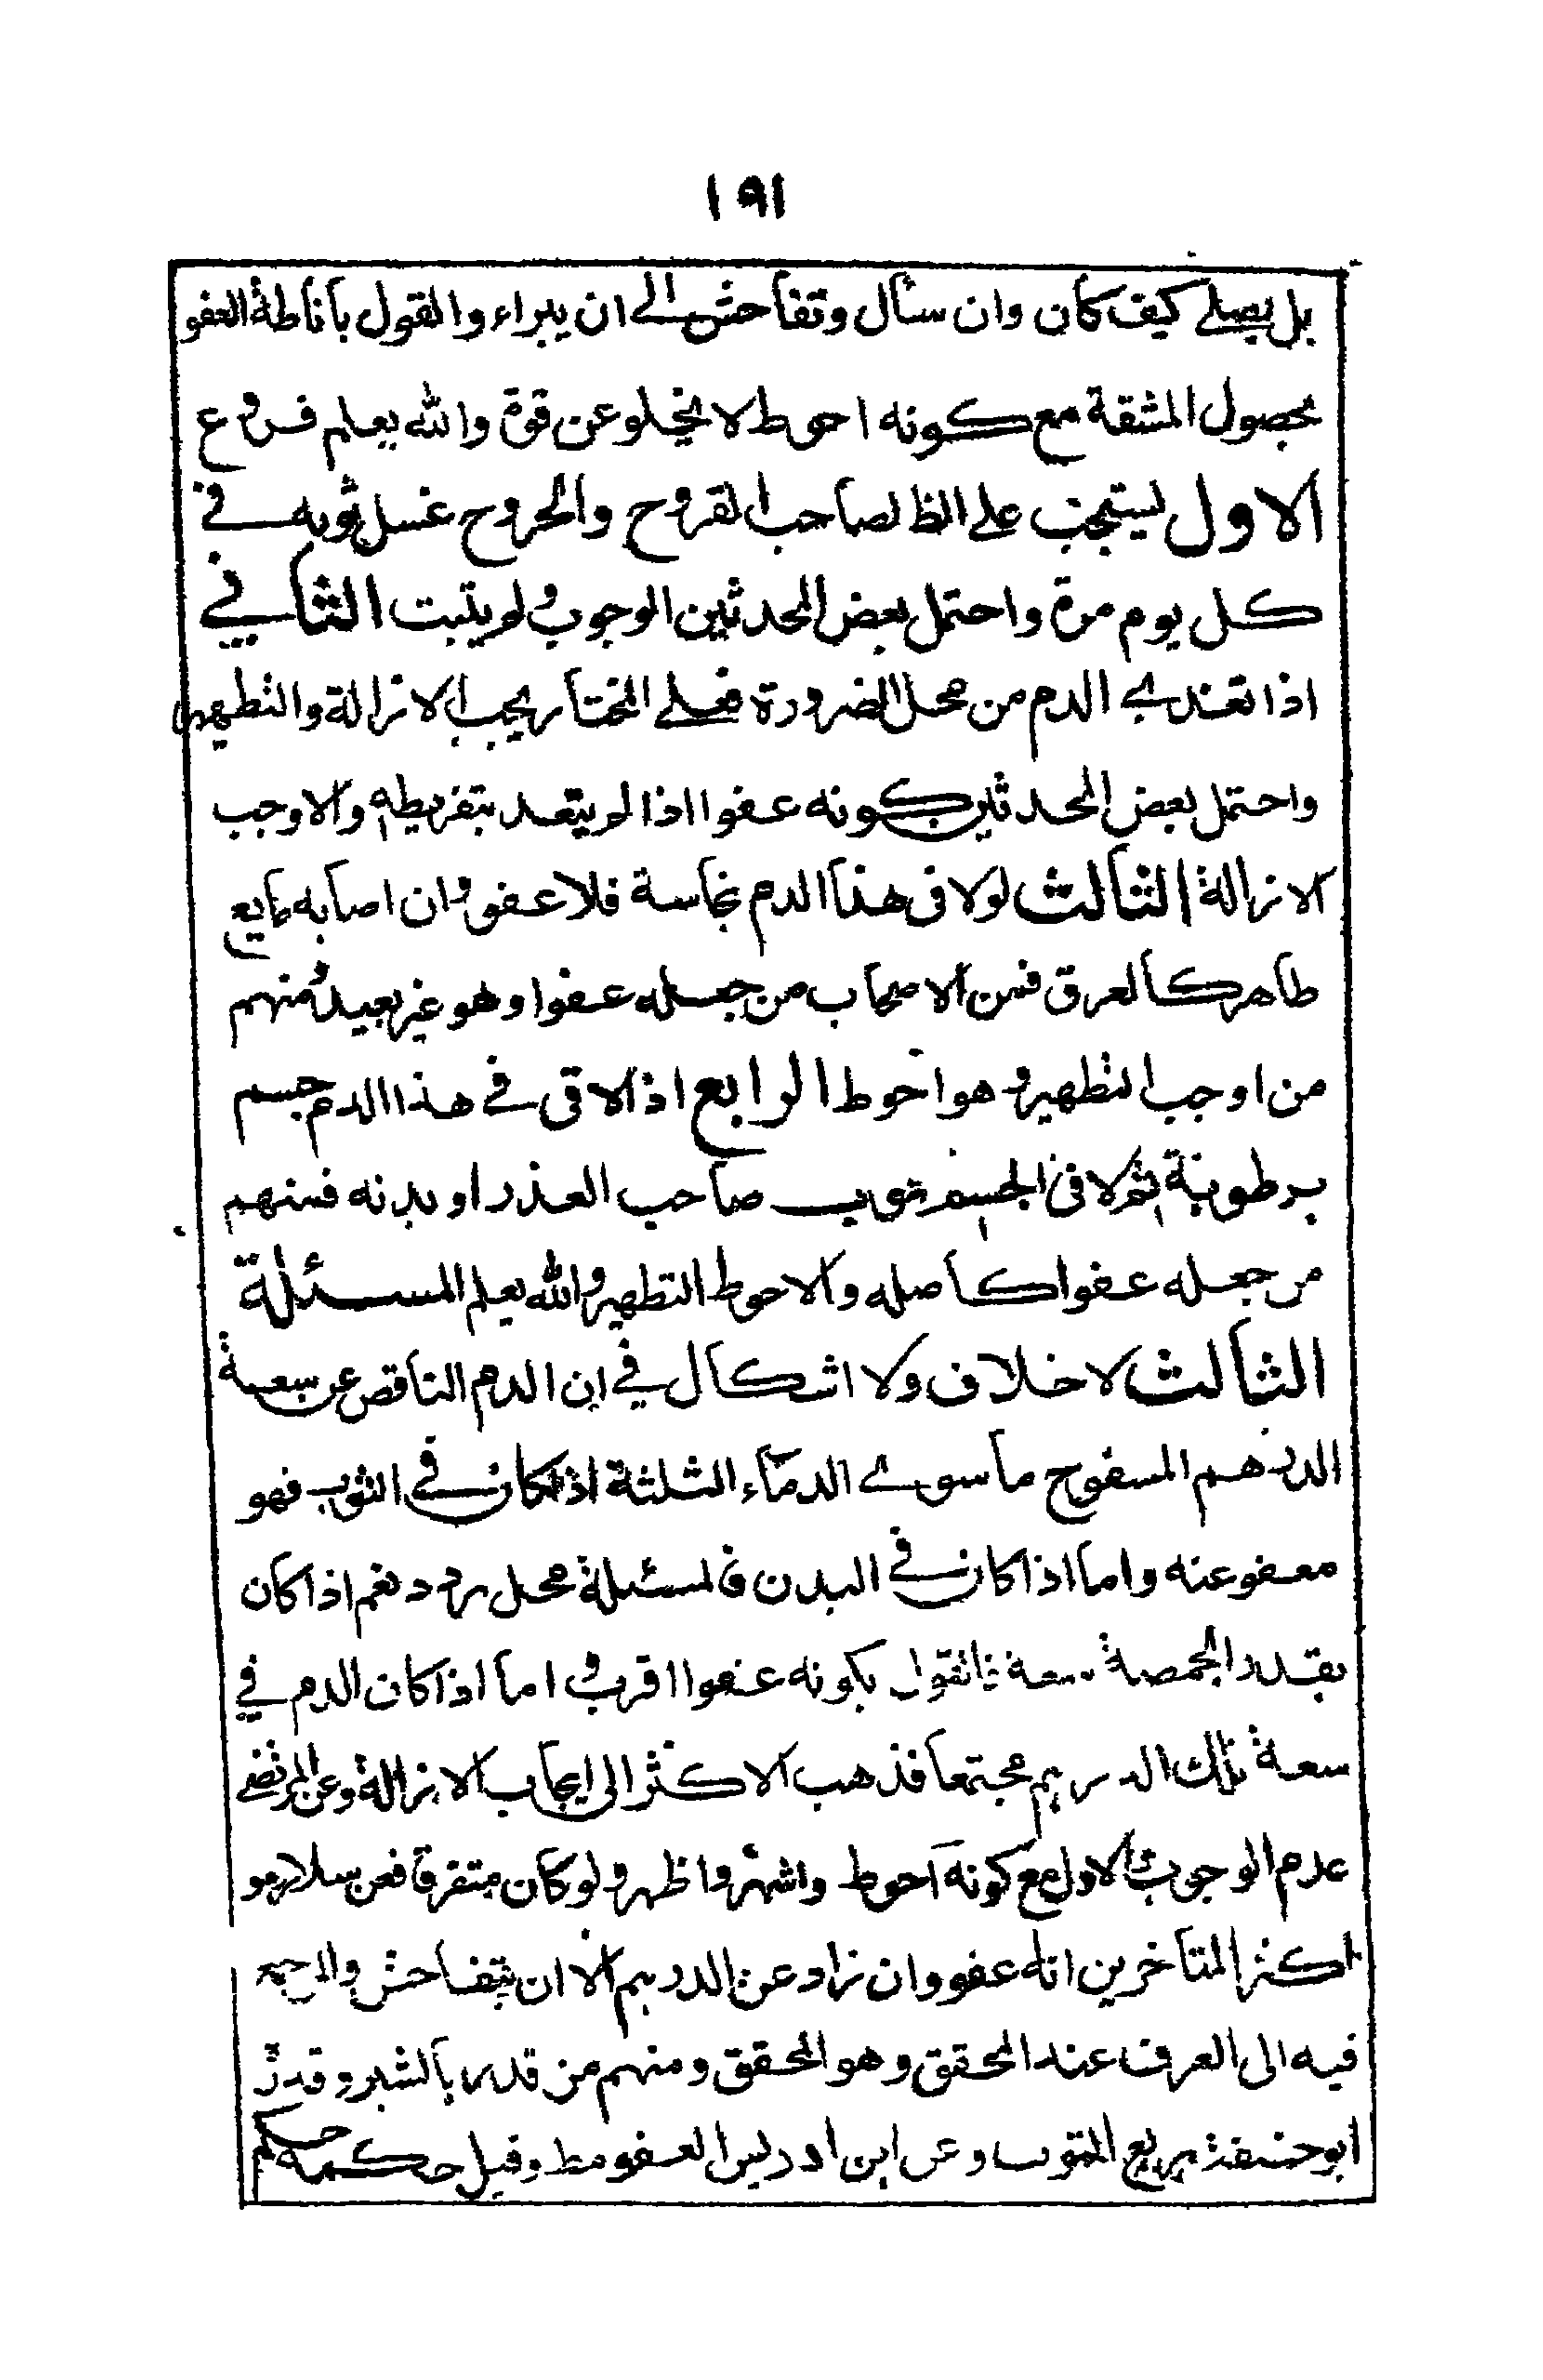 ۱۹۱
بل یصلے کیف کان وان سال وتفاحش الے ان یبراء والقول باناطة العفو
بحصول المشقة مع کونه احوط لا یخلو عن قوة والله یعلم فروع
الاول یستحب علی الظ لصاحب القروح والجروح غسل ثوبه فے
کل یوم مرة واحتمل بعض المحدثین الوجوب ولم یثبت الثانی
اذا تعدے الدم من محل الضرورة فعلے المختار یجب الازالة والتطهیر
واحتمل بعض المحدثین کونه عفوا اذا لم یتعد بتفریطه والا وجب
الازالة الثالث لو لاقی هذا الدم نجاسة فلا عفو وان اصابه مایع
طاهر کالعرق فمن الاصحاب من جعله عفوا وهو غیر بعید ومنهم
من اوجب التطهیر وهو احوط الرابع اذا لاقی فے هذا الدم جسم
برطوبة ثم لاقی الجسم ثوب صاحب العذر او بدنه فمنهم
من جعله عفوا کاصله والاحوط التطهیر والله یعلم المسئلة
الثالث لا خلاف ولا اشکال فی ان الدم الناقص عن سعة
الدرهم المسفوح ما سوے الدماء الثلثة اذا کان فے الثوب فهو
معفو عنه واما اذا کان فے البدن فالمسئلة محل تردد نعم اذا کان
بقدر الحمصة سعة فالقول بکونه عفوا اقرب واما اذا کان الدم فی
سعة ذلک الدرهم مجتمعا فذهب الاکثر الی ایجاب الازالة وعن المرتضے
عدم الوجوب والاول مع کونه احوط واشهر واظهر ولو کان متفرقا فعن سلار هو
اکثر المتاخرین انه عفو وان زاد عن الدرهم الا ان یتفاحش والمرجع
فیه الی العرف عند المحقق وهو المحقق ومنهم من قدر بالشبر وقدر
ابو حنیفة بربع الثوب وعن ابن ادریس العفو مط وقیل حکمه حکم